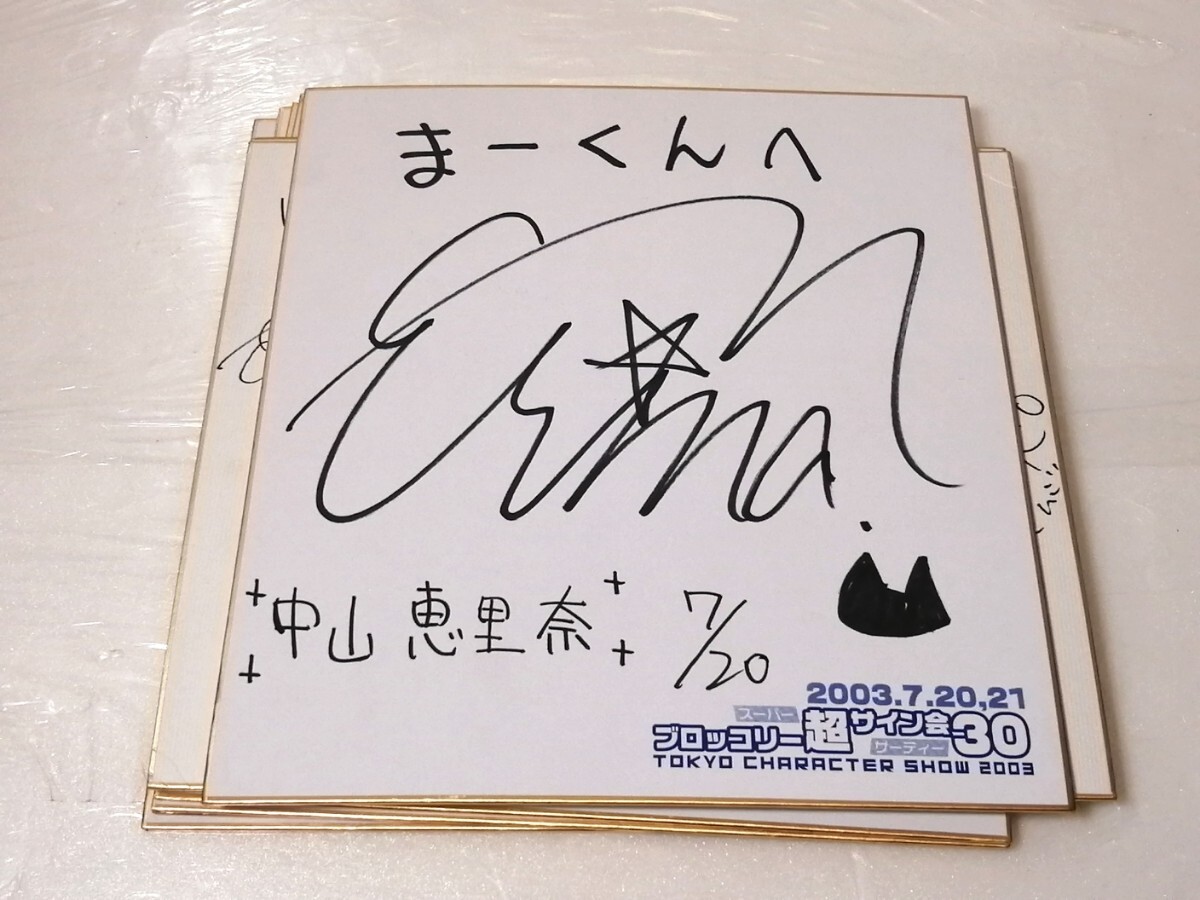 まーくんへ
Erina.
中山 恵里奈 7/20
2003.7.20,21
スーパー サーティー
ブロッコリー超サイン会-30
TOKYO CHARACTER SHOW 2003